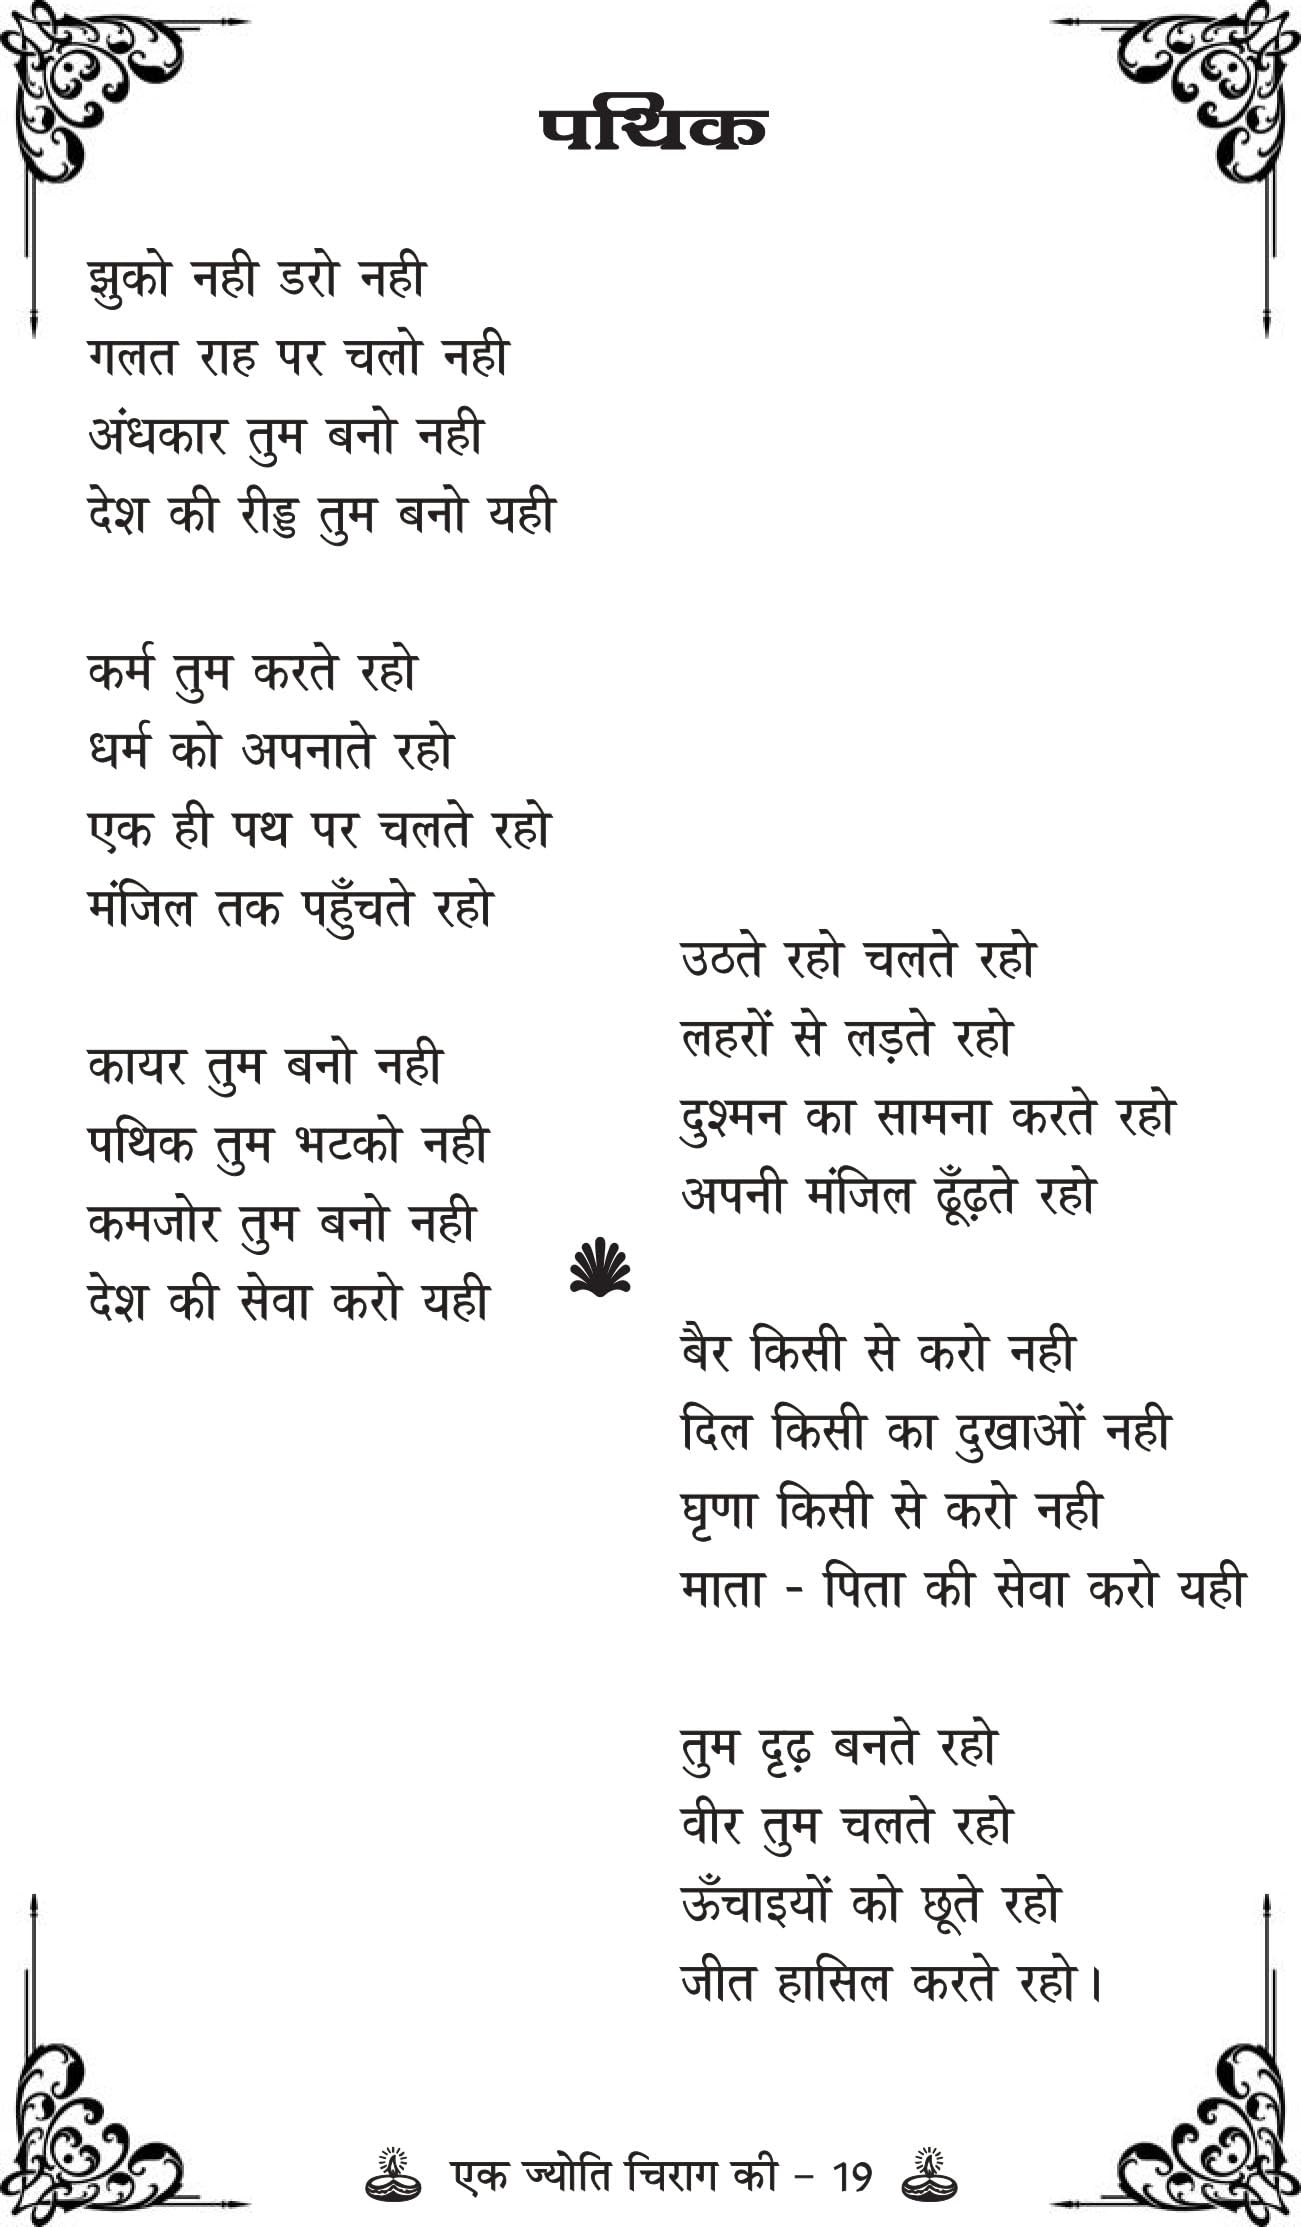 पथिक
झुको नही डरो नही
गलत राह पर चलो नही
अंधकार तुम बनो नही
देश की रीड्ड तुम बनो यही
कर्म तुम करते रहो
धर्म को अपनाते रहो
एक ही पथ पर चलते रहो
मंजिल तक पहुँचते रहो
कायर तुम बनो नही
पथिक तुम भटको नही
कमजोर तुम बनो नही
देश की सेवा करो यही
उठते रहो चलते रहो
लहरों से लड़ते रहो
दुश्मन का सामना करते रहो
अपनी मंजिल ढूँढ़ते रहो
बैर किसी से करो नही
दिल किसी का दुखाओं नही
घृणा किसी से करो नही
माता - पिता की सेवा करो यही
तुम दृढ़ बनते रहो
वीर तुम चलते रहो
ऊँचाइयों को छूते रहो
जीत हासिल करते रहो।
एक ज्योति चिराग की - 19